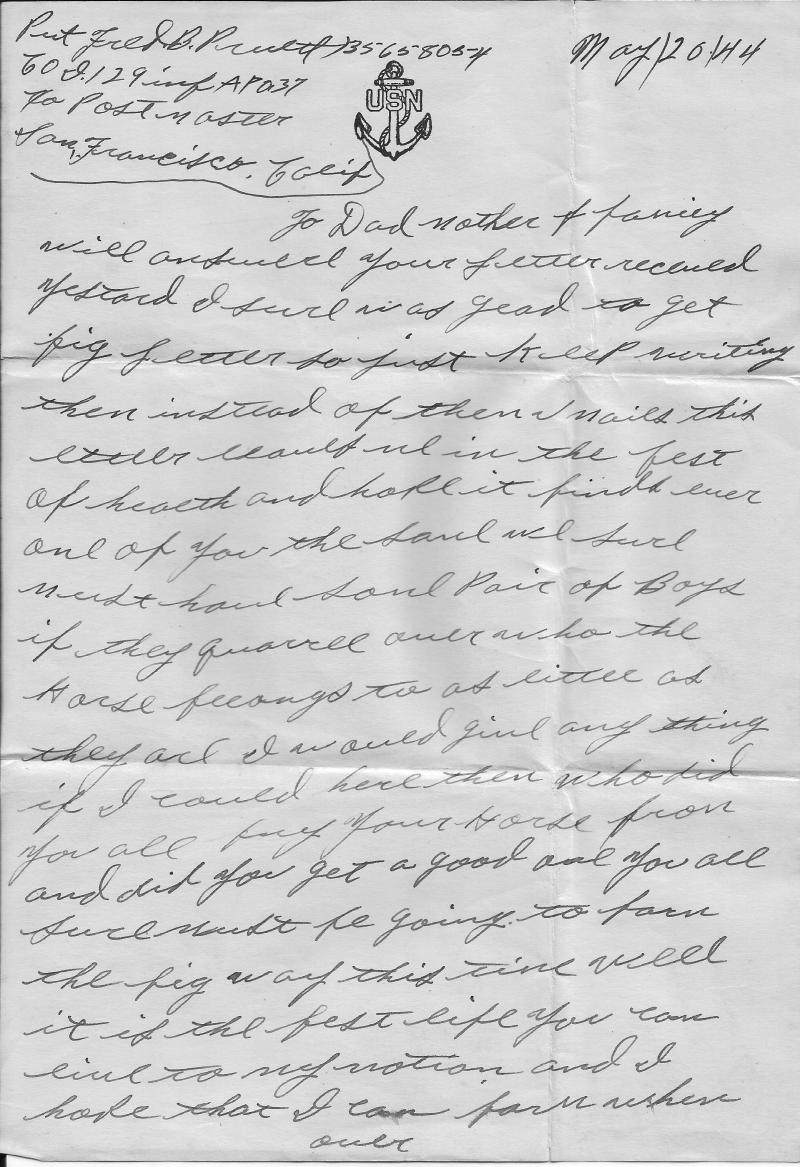 Pvt Fred B. Pruett 35658054
May/20/44
Co I. 129 inf APO 37
℅ Post Master
San, Francisco, Calif
USN
To Dad mother & family
will answere your letter receved
yestard I sure was glad to get
big letter so just keep writing
them instead of them V mails this
letter leave me in the best
of health and hope it finds ever
one of you the same we sure
must have some Pair of Boys
if they quarrel over who the
Horse belongs to as little as
they are I would give any thing
if I could here them who did
you all buy your Horse from
and did you get a good one you all
sure must be going to farm
the big way this time well
it is the best life you can
live to my notion and I
hope that I can farm when
over